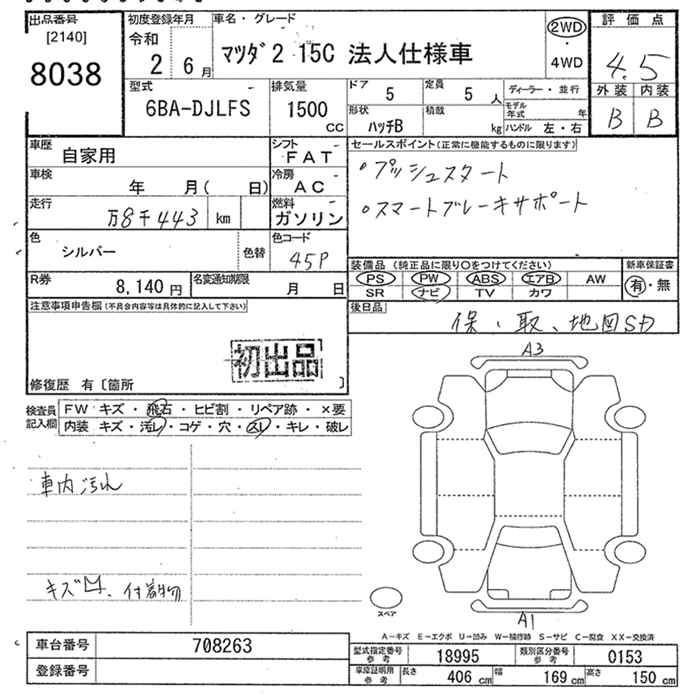 出品番号 初度登録年月 車名・グレード 評価点
[2140] 令和 マツダ2 15C 法人仕様車 2WD
8038 2 6月 4WD 4.5
型式 排気量 ドア 5 定員 5人 ディーラー・並行 外装 内装
6BA-DJLFS 1500 cc 形状 ハッチB 積載 kg モデル年式 年 ハンドル 左・右 B B
車歴 自家用 シフト FAT セールスポイント(正常に機能するものに限ります)
車検 年 月( 日) 冷房 AC ・プッシュスタート
走行 万8千443 km 燃料 ガソリン ・スマートブレーキサポート
色 シルバー 色替 色コード 45P
装備品 (純正品に限り○をつけてください) 新車保証書
R券 8,140円 名変通知期限 月 日 PS PW ABS エアB AW 有・無
SR ナビ TV カワ
注意事項申告欄(不具合内容等は具体的に記入して下さい) 後日品 保・取、地図SD
初出品
修復歴 有〔箇所 〕
A3
検査員記入欄 FW キズ・飛石・ヒビ割・リペア跡・×要
内装 キズ・汚レ・コゲ・穴・スレ・キレ・破レ
車内汚れ
キズ凹、付着物
スペア
A1
A-キズ E-エクボ U-凹み W-補修跡 S-サビ C-腐食 XX-交換済
車台番号 708263 型式指定番号 参考 18995 類別区分番号 参考 0153
登録番号 車庫証明用 参考 長さ 406cm 幅 169cm 高さ 150cm